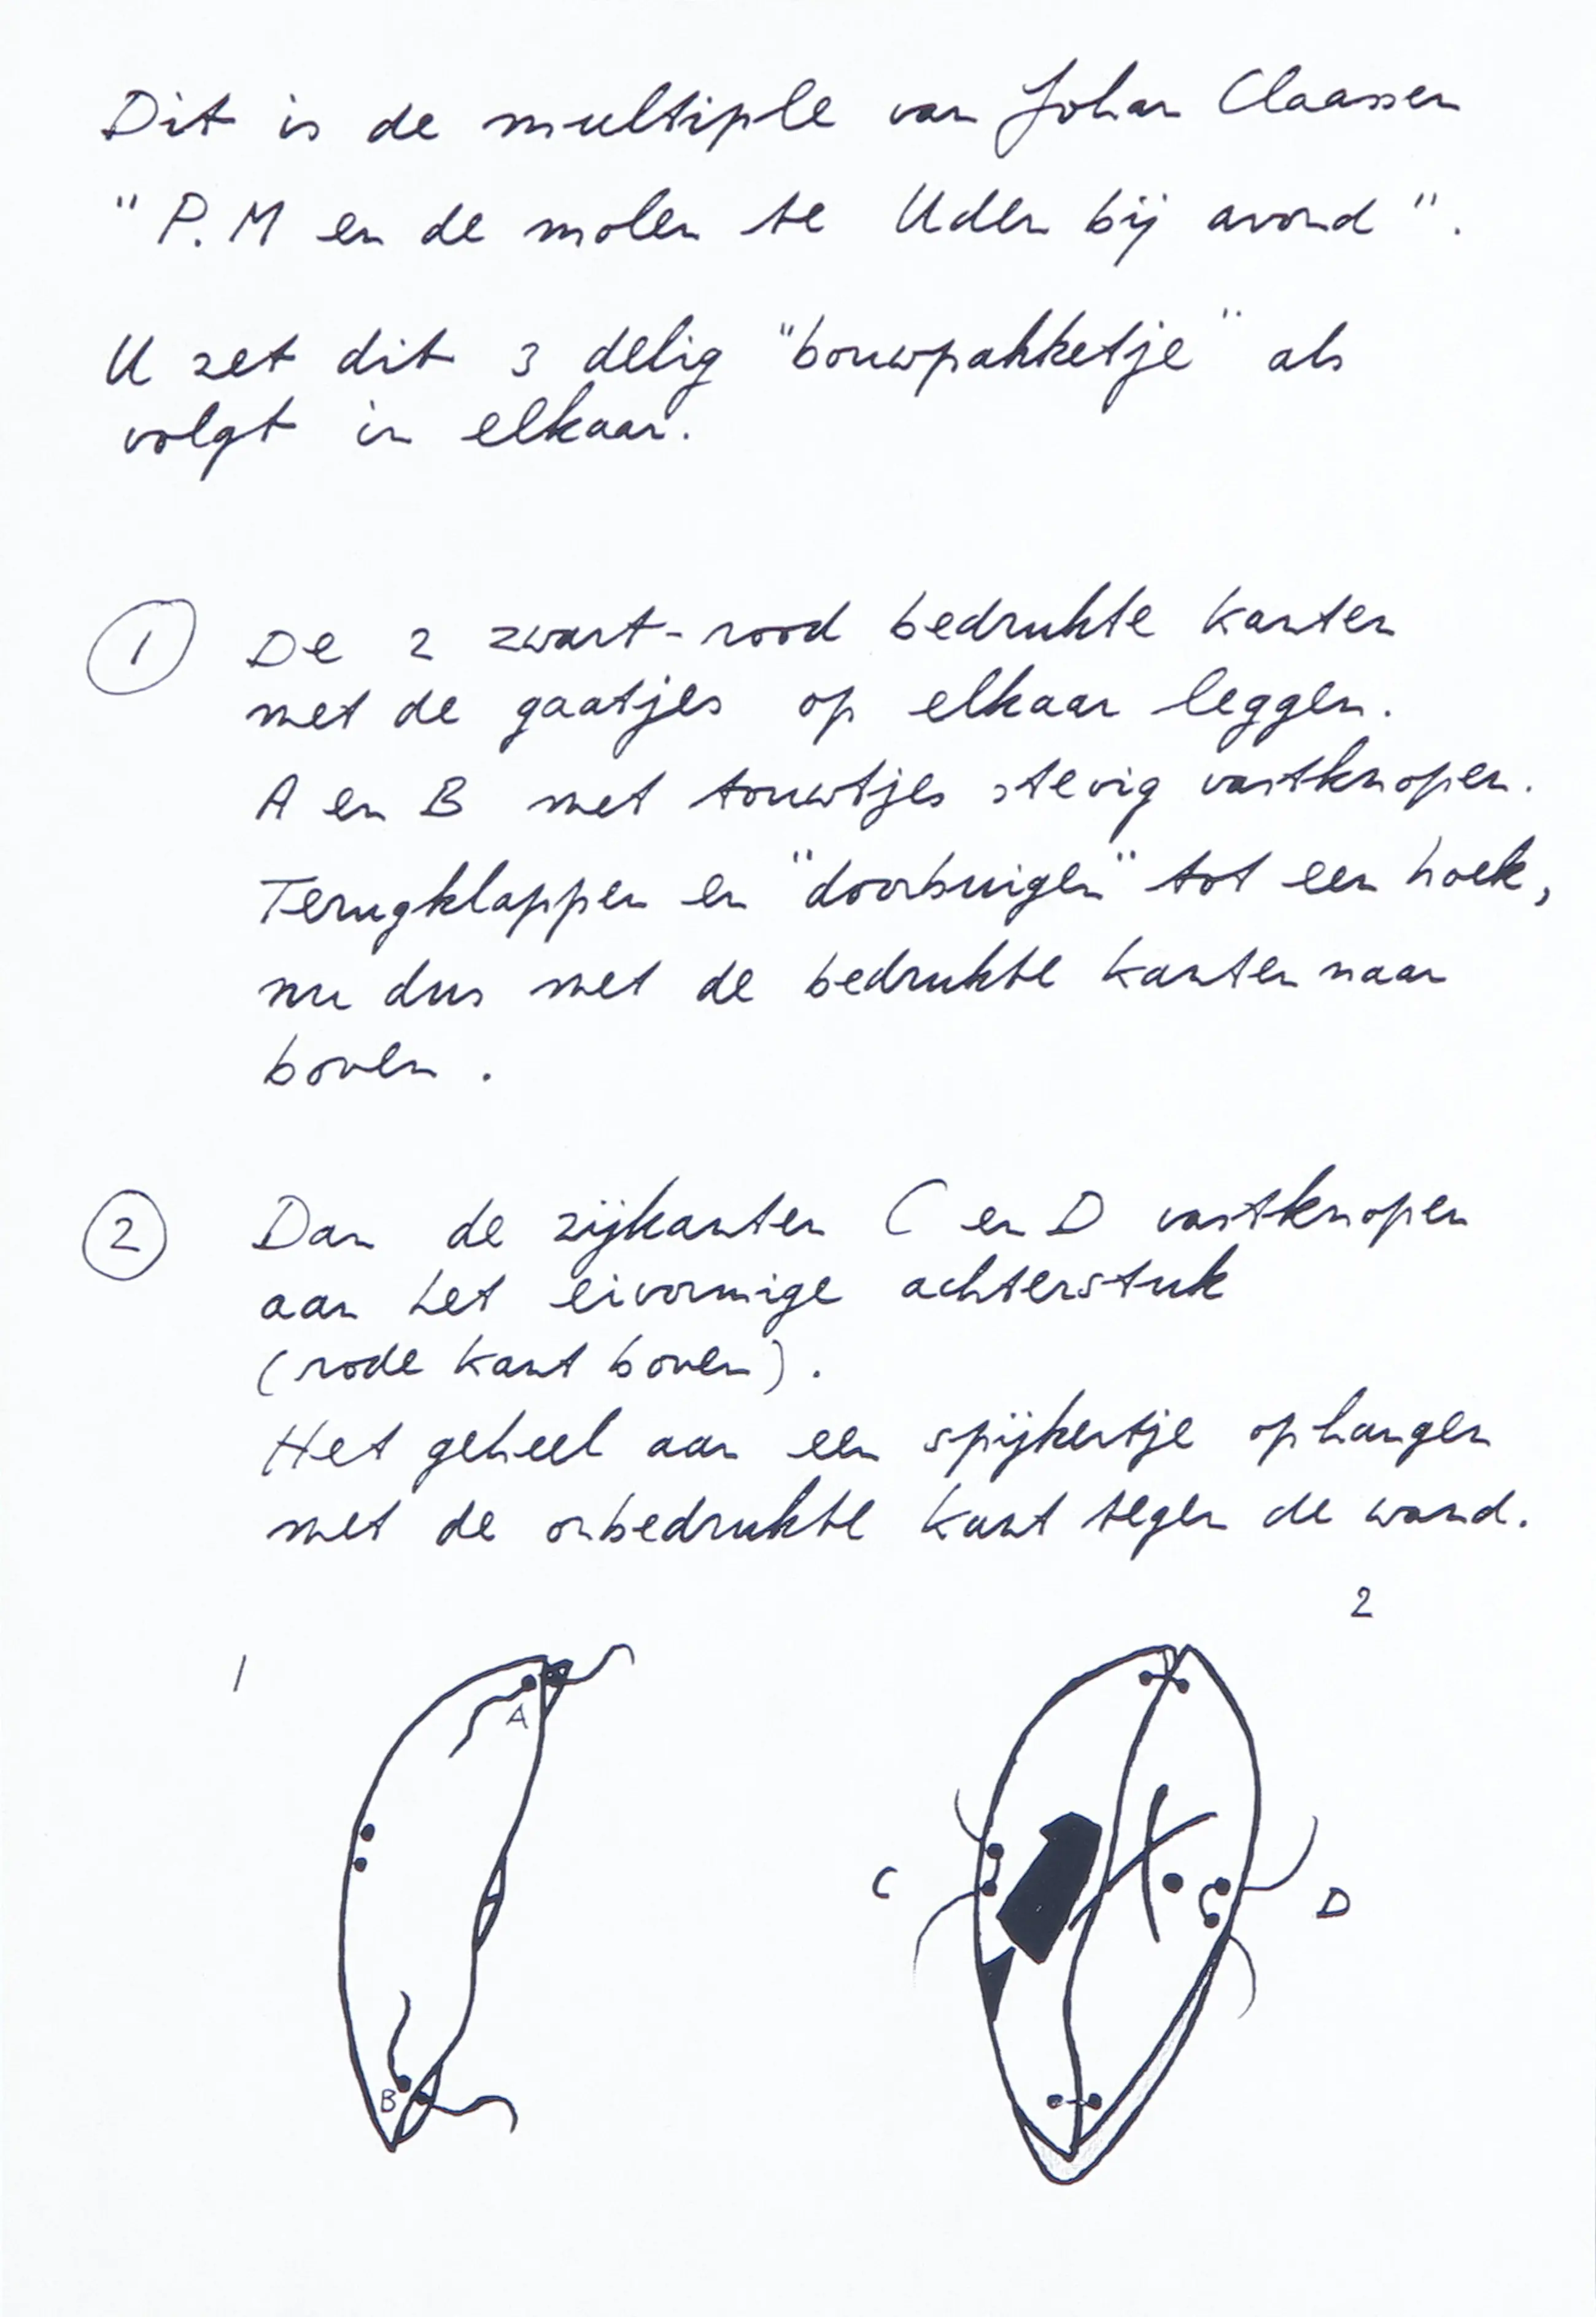 Dit is de multiple van Johan Claassen
" P.M en de molen te Uden bij avond ".
U zet dit 3 delig "bouwpakketje" als
volgt in elkaar.
1 De 2 zwart-rood bedrukte kanten
met de gaatjes op elkaar leggen.
A en B met touwtjes stevig vastknopen.
Terugklappen en "doorbuigen" tot een hoek,
nu dus met de bedrukte kanten naar
boven.
2 Dan de zijkanten C en D vastknopen
aan het eivormige achterstuk
(rode kant boven).
Het geheel aan een spijkertje ophangen
met de onbedrukte kant tegen de wand.
1
A
B
2
C
D